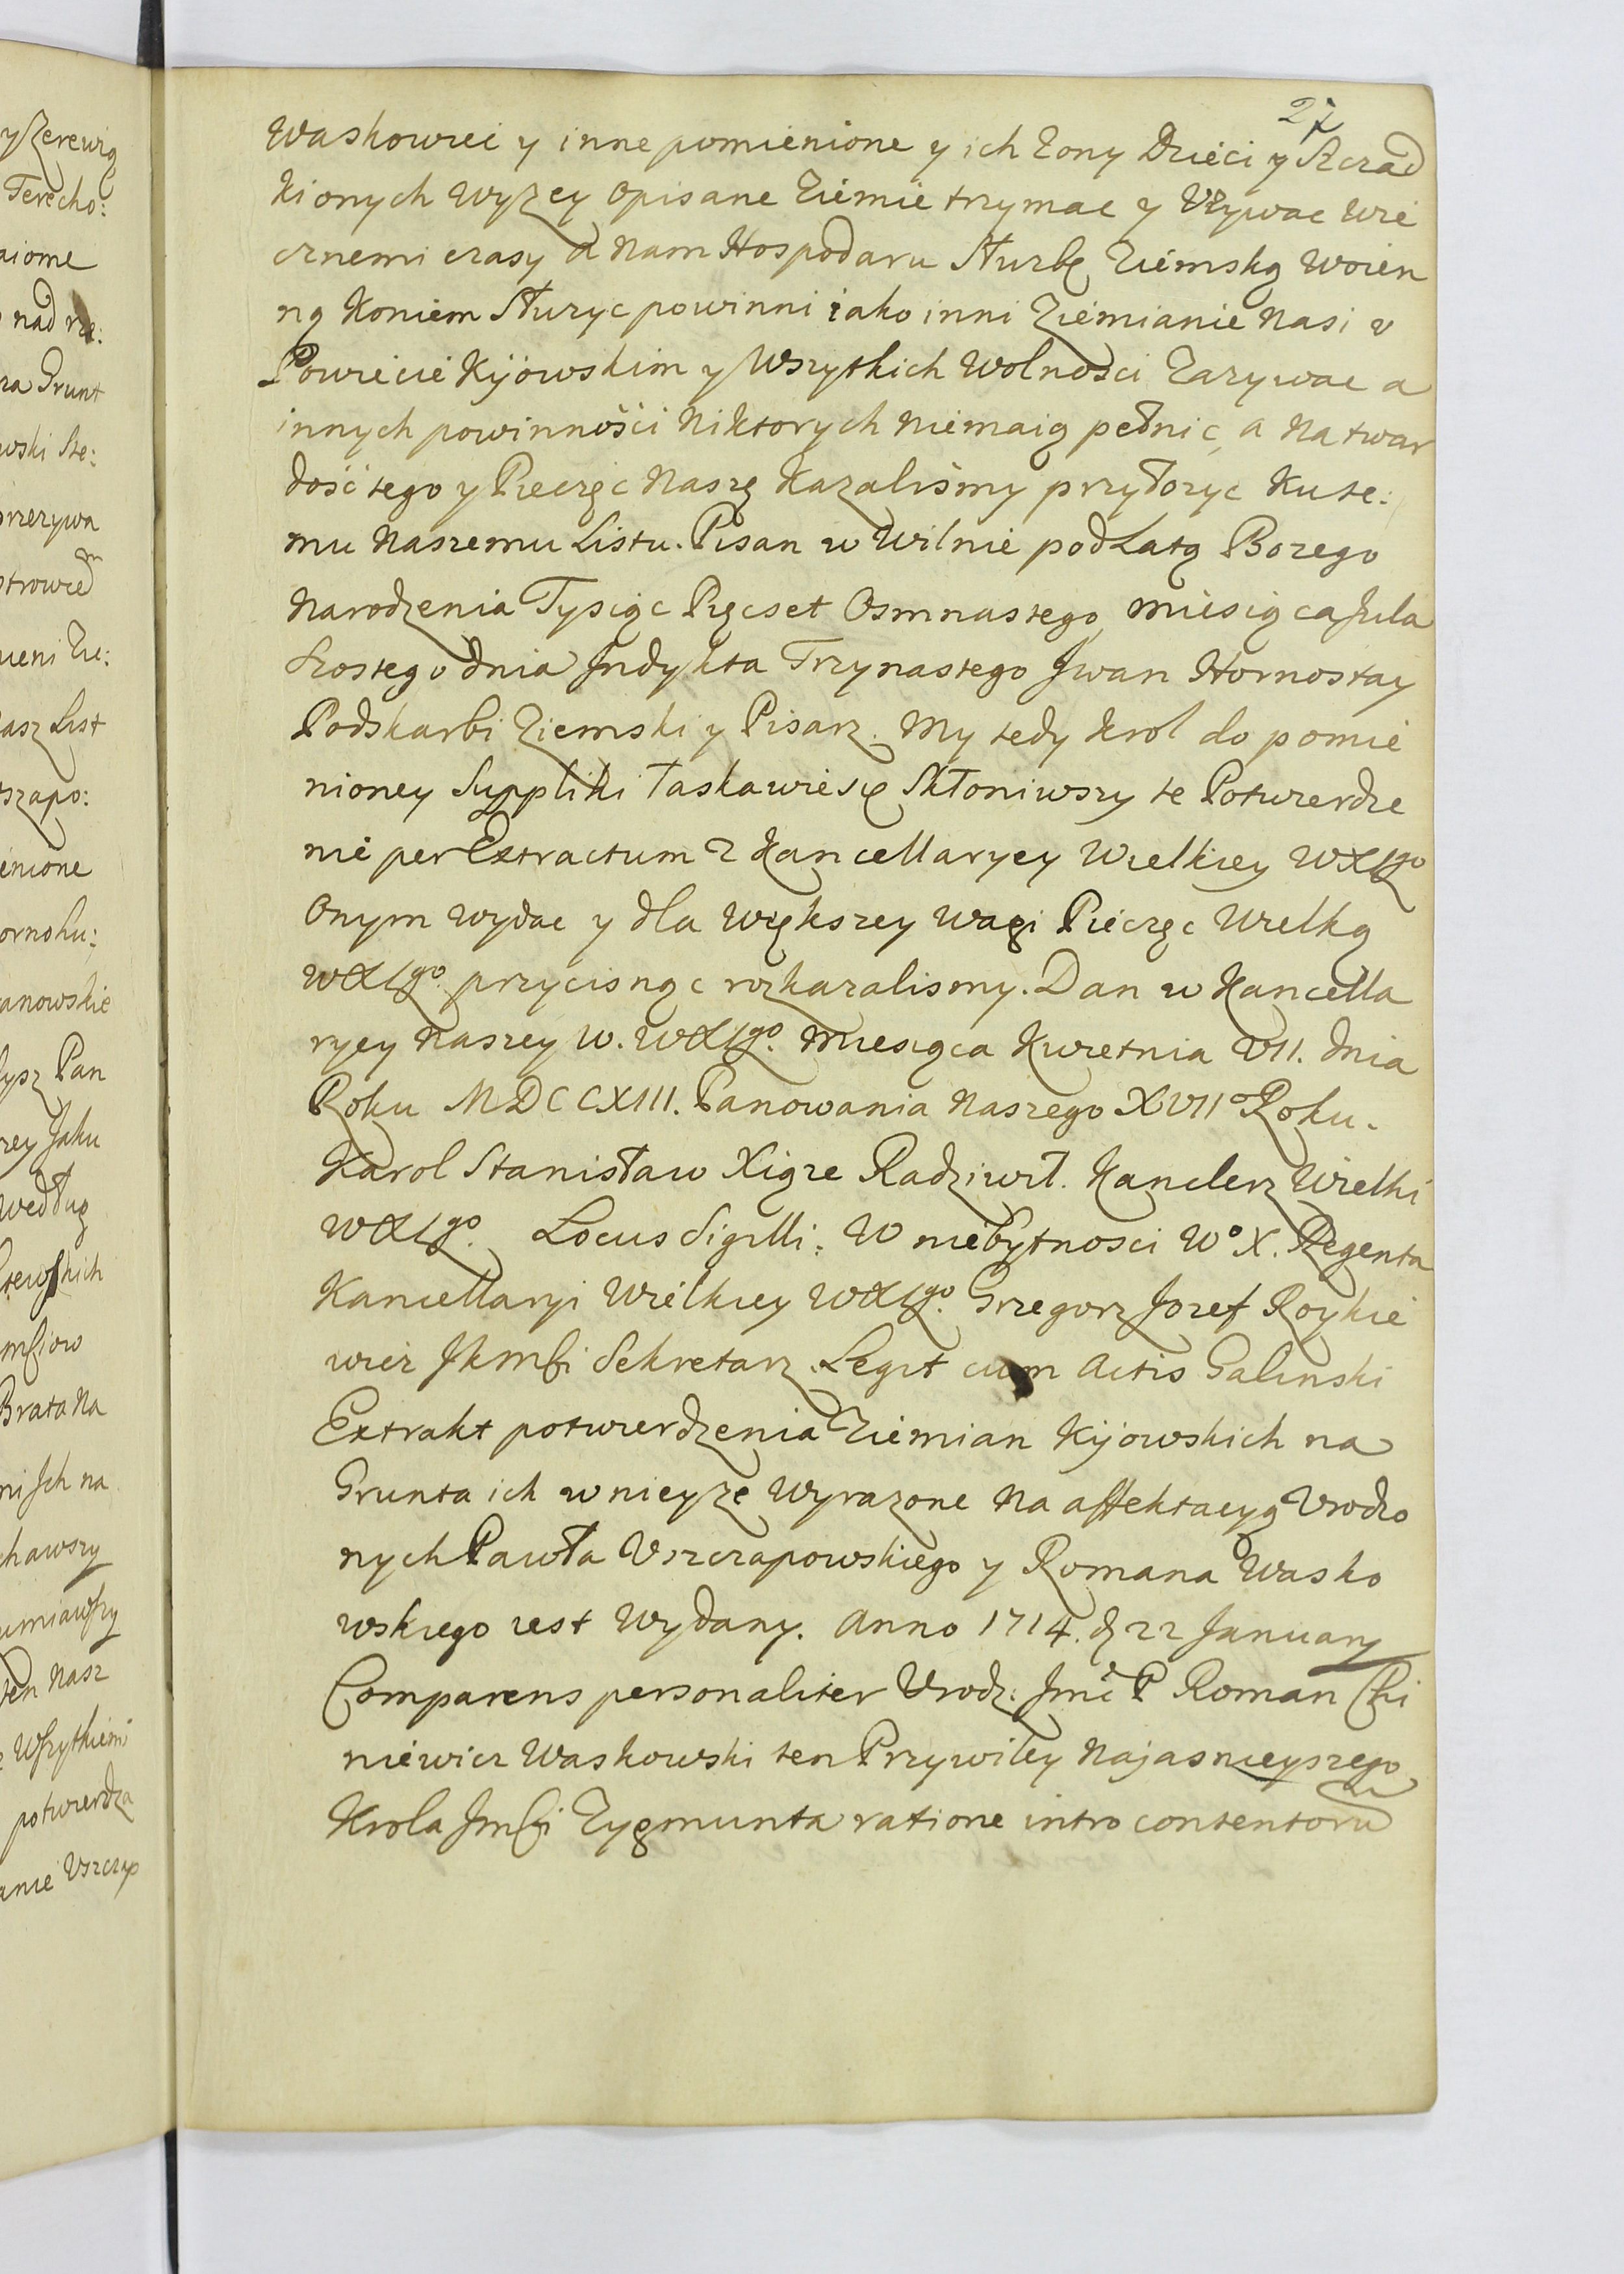 27
Waskowie y inne pomienione y ich Zony Dzieci y Szczad
kionych wyzey opisane Ziemie trzymac y Vzywac wie
cznemi czasy a nam Hospodaru Służbę Ziemską woien
ną koniem Służyc powinni iako inni Ziemianie nasi w
Powiecie Kijowskim y Wszytkich wolności Zazywac a
innych powinności niktorych niemaią pełnic, a na twar
dość tego y Pieczęc naszę kazaliśmy przyłozyc ku te:
mu naszemu Listu. Pisan w Wilnie pod Latą Bozego
narodzenia Tysiąc Pięcset Osmnastego, miesiąca Jula
Szostego dnia Jndykta Trzynastego Jwan Hornostay
Podskarbi Ziemski y Pisarz. My tedy Krol do pomie
nioney Suppliki łaskawie się Skłoniwszy te Potwierdze
nie per Extractum z Kancellaryey Wielkiey WXLgo
Onym wydac y dla większey wagi Pieczęc Wielką
WXLgo. przycisnąc rozkazalismy. Dan w Kancella
ryey naszey W. WXLgo. Miesiąca Kwietnia VII. dnia
Roku MDCCXIII. Panowania naszego XVIIo Roku.
Karol Stanisław Xiąze Radziwił. Kanclerz Wielki
WXLgo. Locus Sigilli: W niebytnosci Wo X. Regenta
Kancellaryi Wielkiey WXLgo. Grzegorz Jozef Roykie
wicz JKmści Sekretarz. Legit cum Actis Galinski
Extrakt potwierdzenia Ziemian Kijowskich na
Grunta ich w nieyze wyrazone na affektacyą Vrodzo
nych Pawła Vszczapowskiego y Romana Wasko
wskiego iest wydany. Anno 1714. d 22 January
Comparens personaliter Vrodz: Jmć P Roman Chi
niewicz Waskowski ten Przywiley Najasnieyszego
Krola Jmści Zygmunta ratione intro contentoru